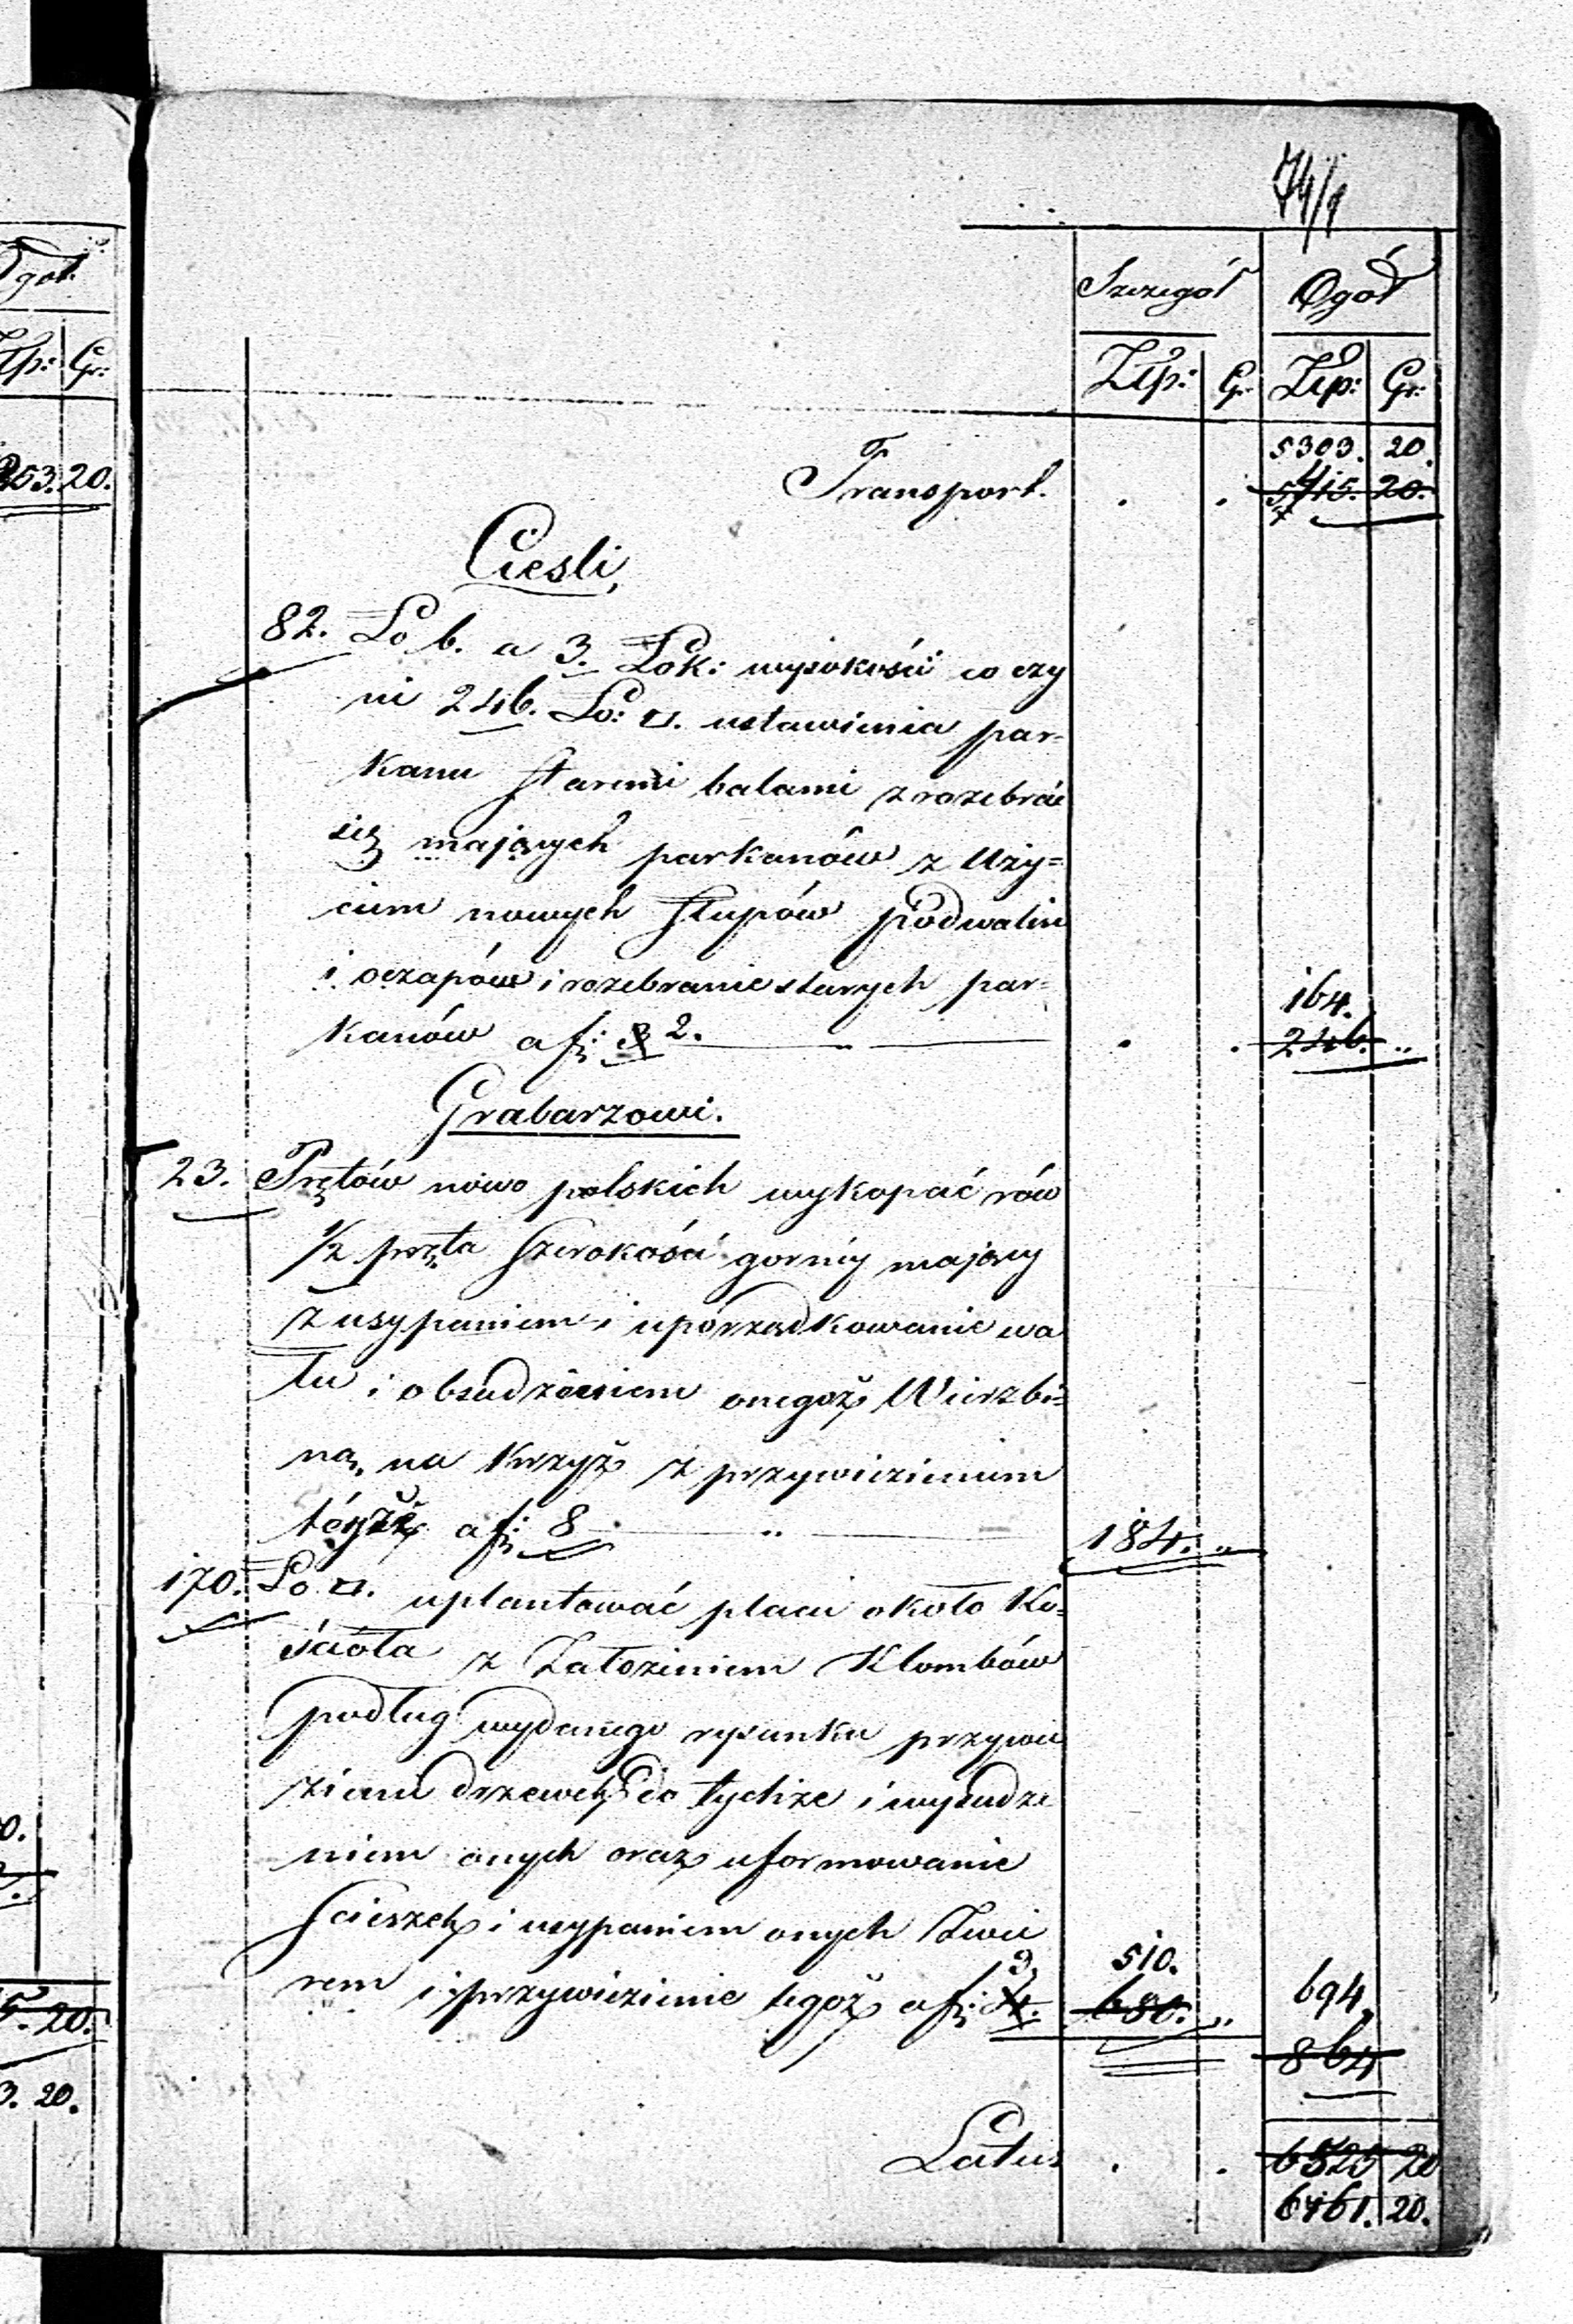 74/1
Ogół
Złp: Gr:
253. 20.
0.
5. 20.
3. 20.
Szczegół Ogół
Złp: Gr. Złp: Gr:
5303. 20.
Transport. . . 5415. 20.
Cieśli,
82. Ło b. a 3. Łok: wysokości co czy
ni 246. Ło: □. ustawienia par-
kanu staremi balami z rozebrać
się mających parkanów z Uży=
ciem nowych słupów podwalin
i oczapów i rozebranie starych par=
164.
kanów a f: 3 2. „ . . 246. „
Grabarzowi.
23. Prętów nowo polskich wykopać rów
1/2 pręta szerokości gorniy mający
z usypaniem i upórządkowanie wa
łu i obsadzeniem onegoż Wierzbi=
ną, na krzyż z przywiezieniem
téyże a f: 8 „ 184. „
170. Ło □. uplantować placu około Ko=
ścioła z Założeniem Klombów
podług wydanego rysunku przywie
zienie drzewek do tychże i wysadze
niem onych oraz uformowanie
scieszek i usypaniem onych Zwie
3 510.
rem i przywiezienie tegoż a f: 4. 680. „ 694,
864
Latus . . 6525 20
6161. 20.